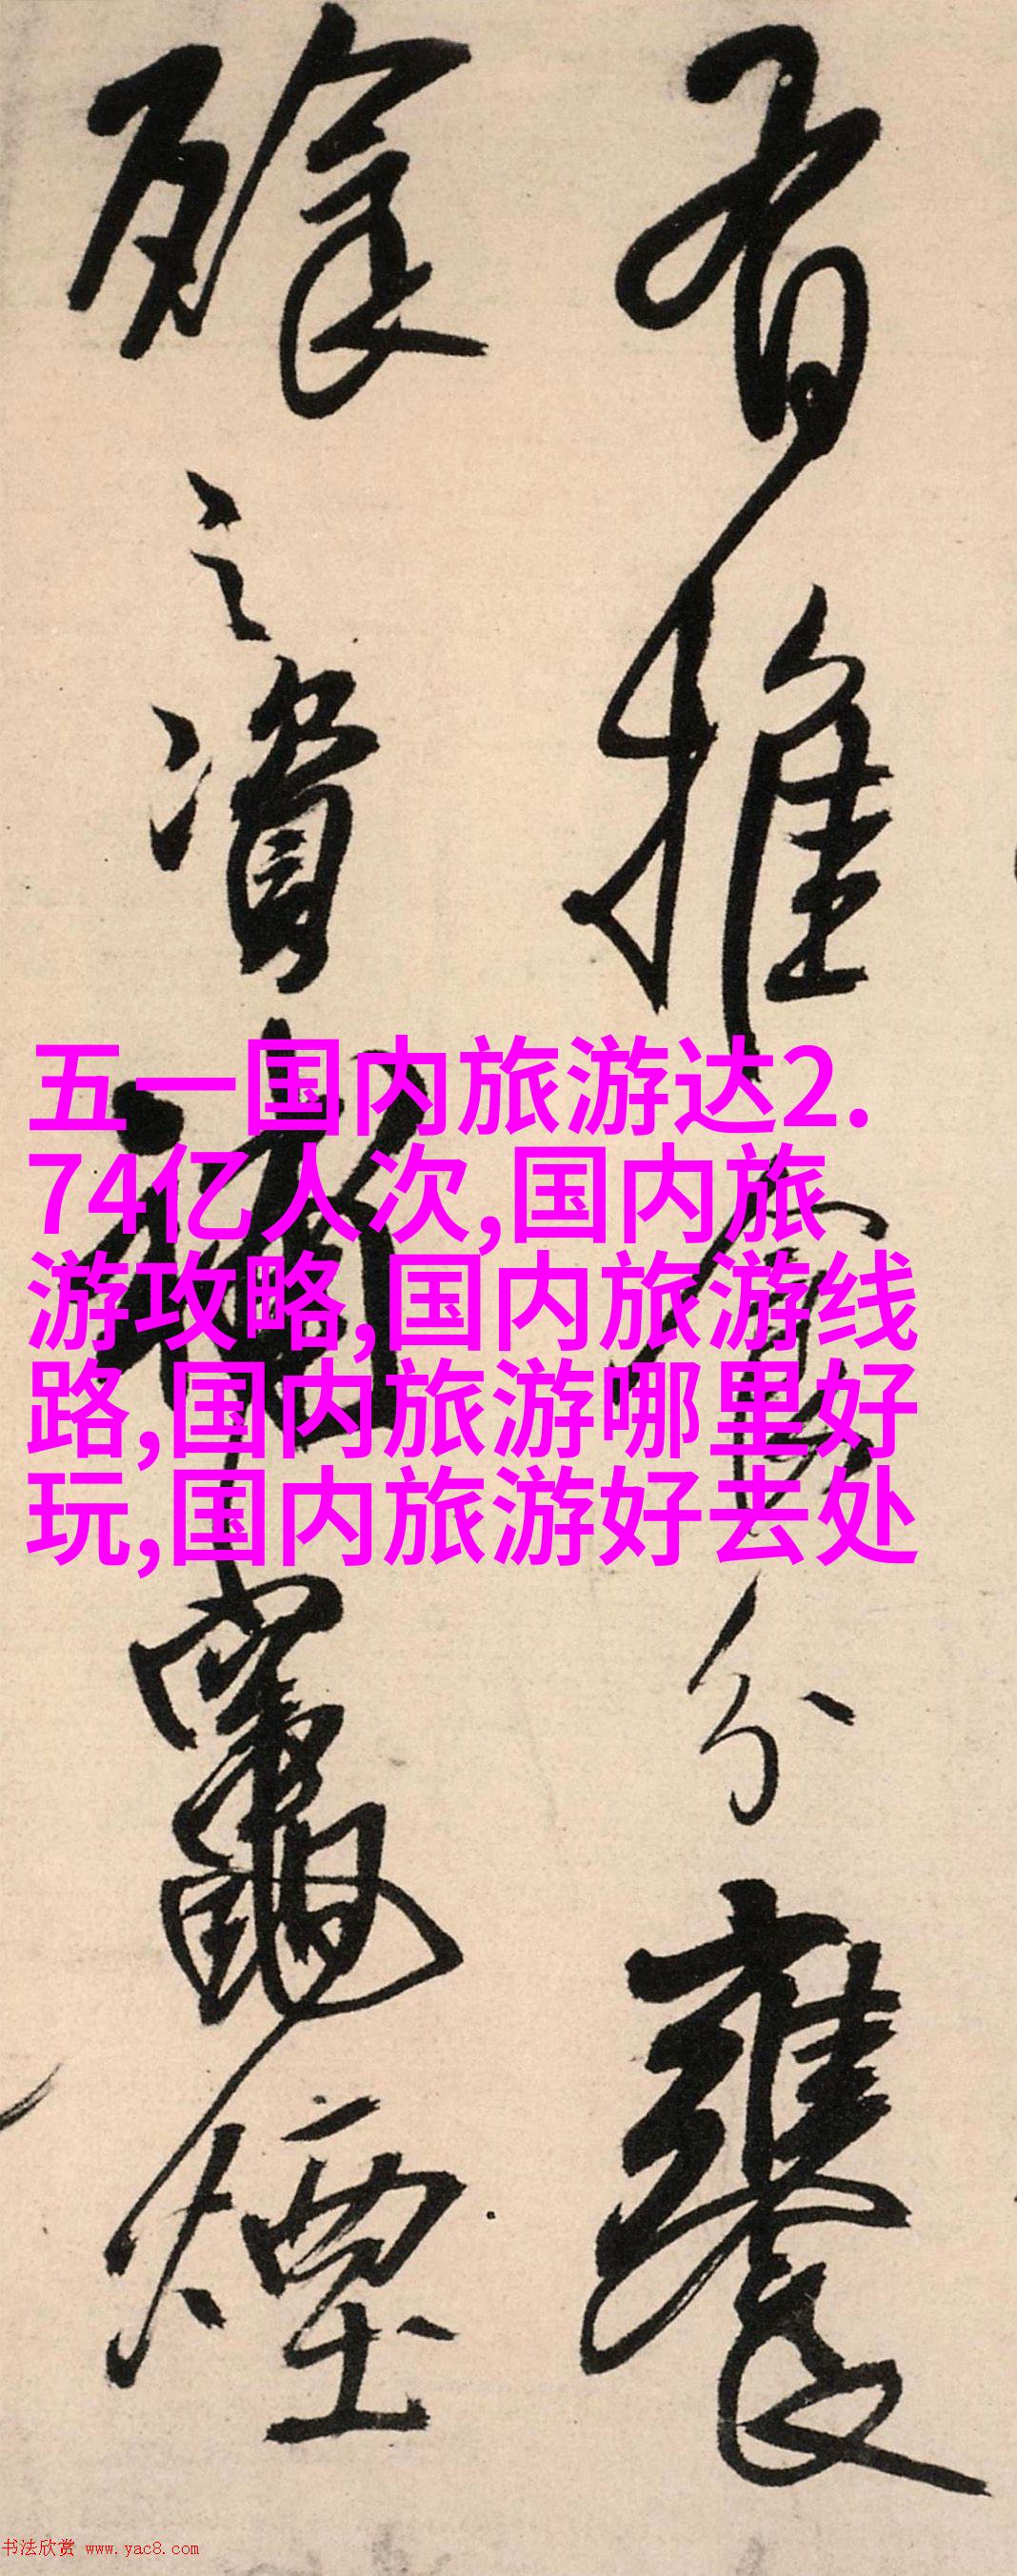 有推食分饔
餘之資補竈煙
五一国内旅游达2.
74亿人次,国内旅
游攻略,国内旅游线
路,国内旅游哪里好
玩,国内旅游好去处
书法欣赏 www.yac8.com